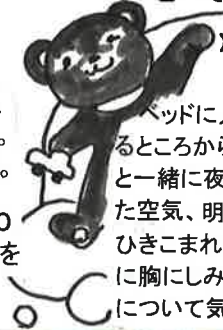 ベッドに
るところから
と一緒に夜
た空気、明
ひきこまれ
に胸にしみ
について気
。
。
を